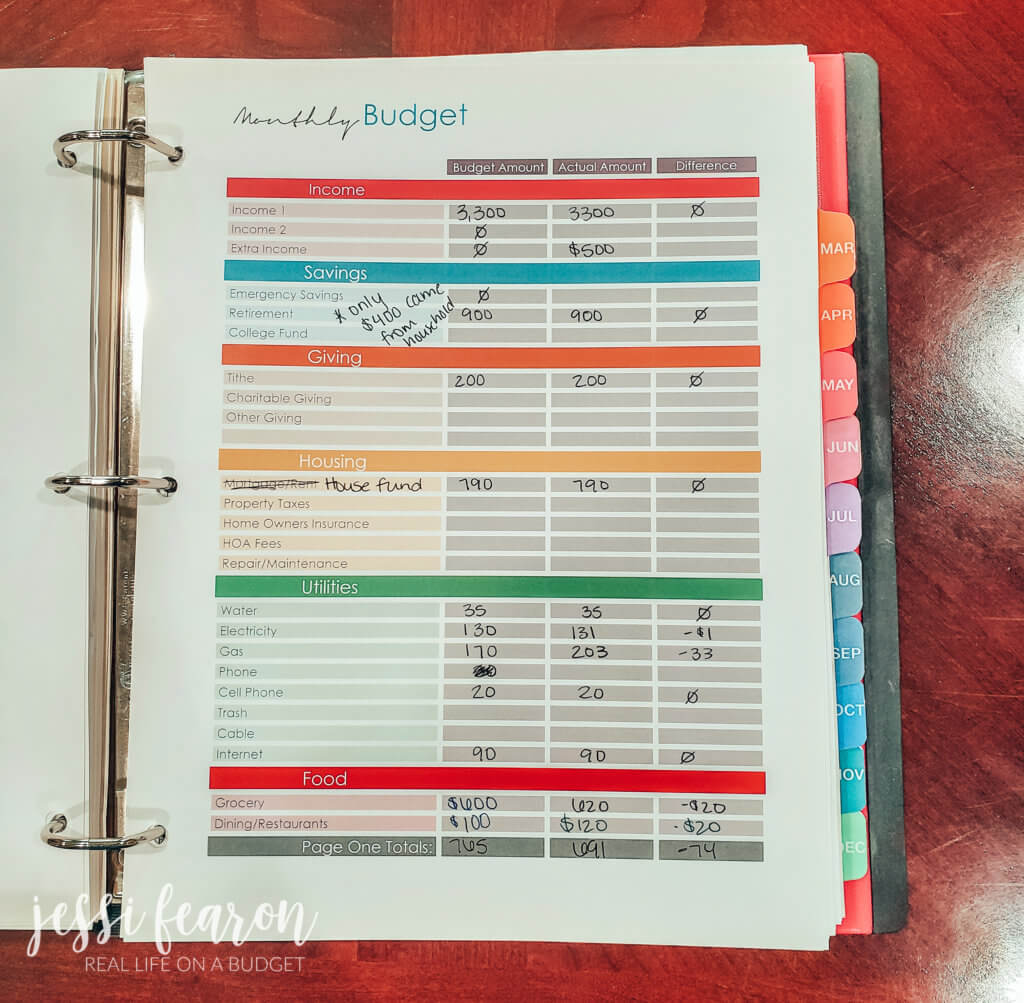 Monthly Budget
Budget Amount Actual Amount Difference
Income
Income 1 3,300 3300 Ø
Income 2 Ø
Extra Income Ø $500
Savings
Emergency Savings Ø
Retirement 900 900 Ø
College Fund
* only
$400 came
from
household
Giving
Tithe 200 200 Ø
Charitable Giving
Other Giving
Housing
Mortgage/Rent House fund 790 790 Ø
Property Taxes
Home Owners Insurance
HOA Fees
Repair/Maintenance
Utilities
Water 35 35 Ø
Electricity 130 131 -$1
Gas 170 203 -33
Phone
Cell Phone 20 20 Ø
Trash
Cable
Internet 90 90 Ø
Food
Grocery $600 620 -$20
Dining/Restaurants $100 $120 -$20
Page One Totals: 765 691 -74
MAR
APR
MAY
JUN
JUL
AUG
SEP
OCT
NOV
DEC
jessi fearon
REAL LIFE ON A BUDGET